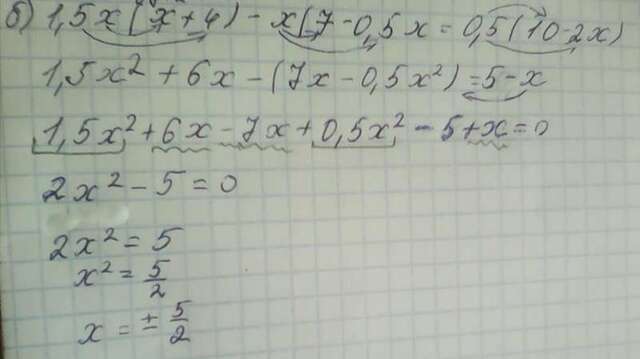 б) 1,5x(x+4) - x(7-0,5x = 0,5(10-2x)
1,5x² + 6x - (7x - 0,5x²) = 5 - x
1,5x² + 6x - 7x + 0,5x² - 5 + x = 0
2x² - 5 = 0
2x² = 5
x² = 5/2
x = ± 5/2